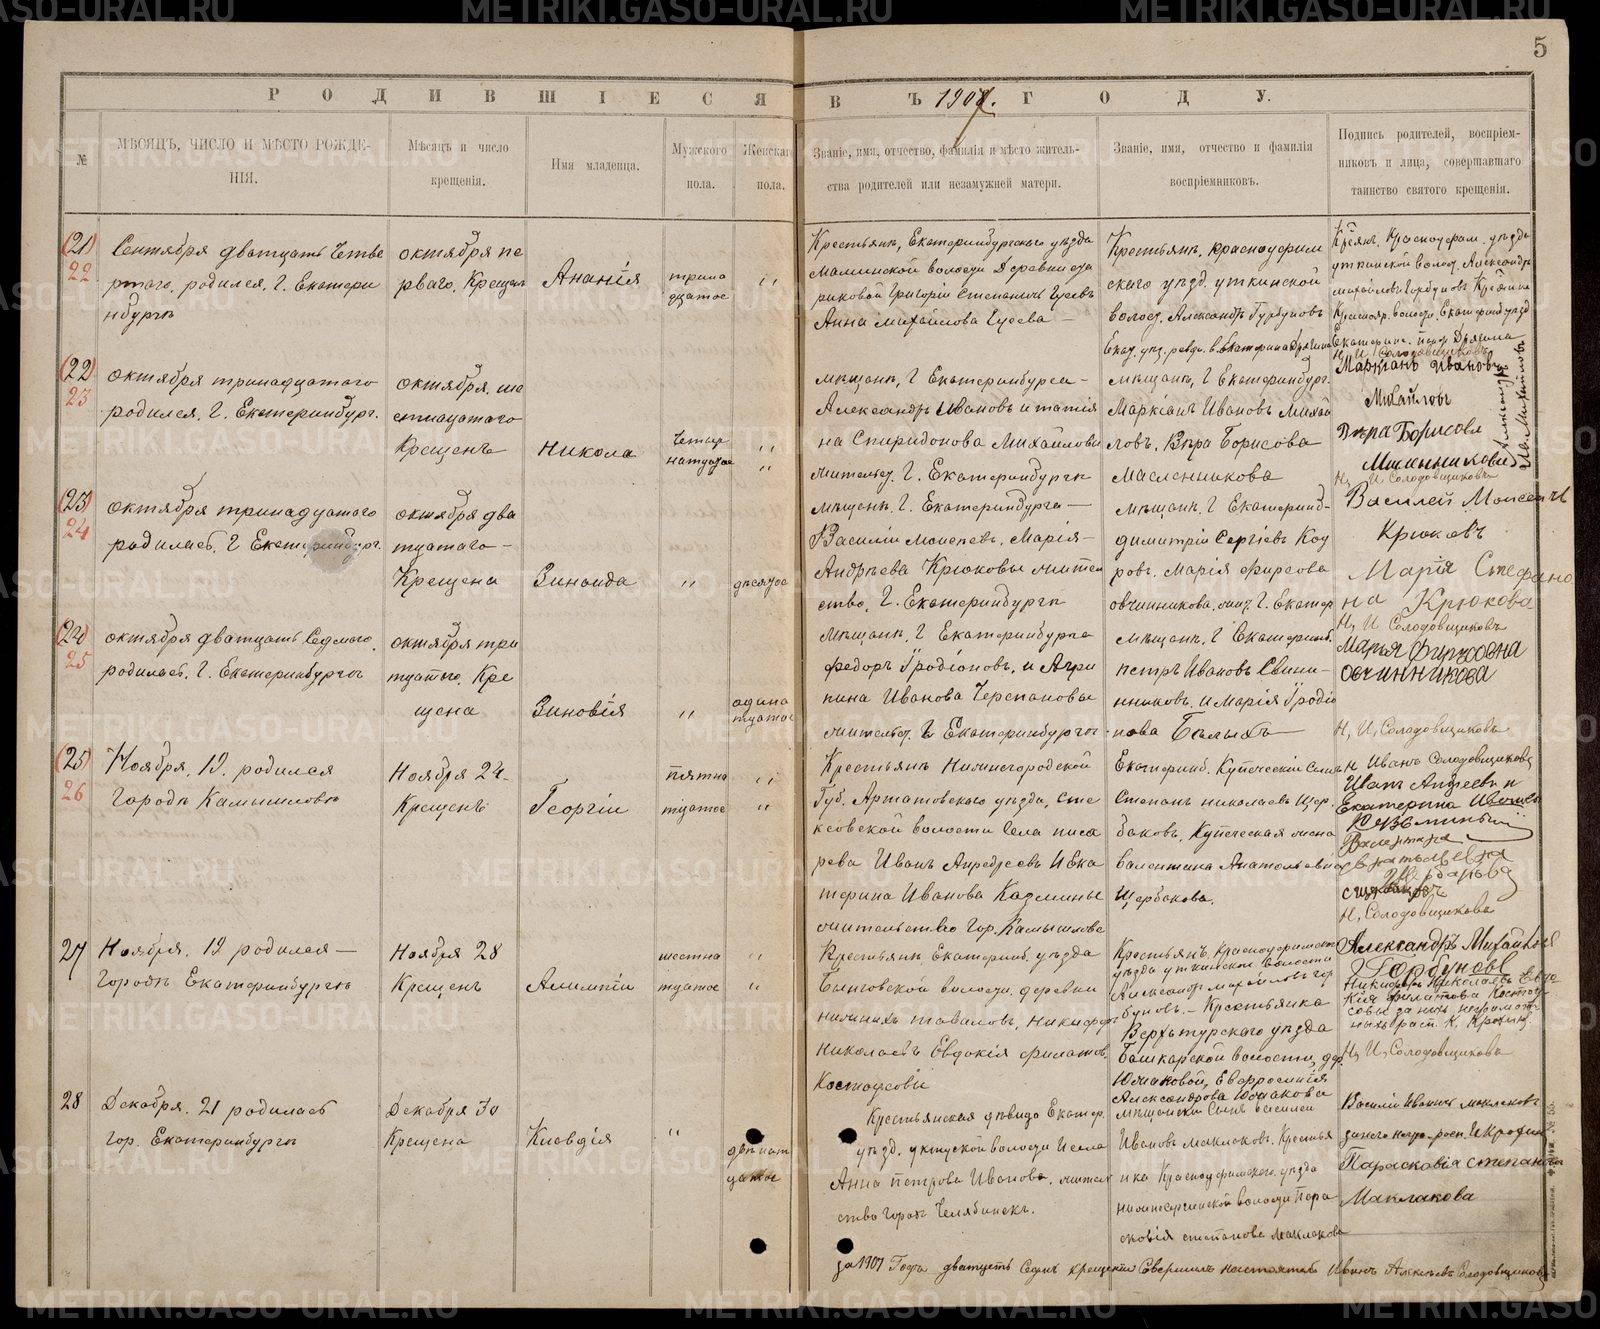 5
РОДИВШІЕСЯ ВЪ 1907. ГОДУ.
№
МѢСЯЦЪ, ЧИСЛО И МѢСТО РОЖДЕ-
НІЯ.
Мѣсяцъ и число
крещенія.
Имя младенца.
Мужского
пола.
Женскаго
пола.
Званіе, имя, отчество, фамилія и мѣсто житель-
ства родителей или незамужней матери.
Званіе, имя, отчество и фамилія
воспріемниковъ.
Подпись родителей, воспріем-
никовъ и лица, совершавшаго
таинство святого крещенія.
(21)
22
Сентября дватцать Четве
ртаго. родился, Г. Екатери
нбургѣ
октября пе
рваго, Крещен
Ананія
трина
дцатое
"
Крестьянъ, Екатеринбургскаго уѣзда
Маминской волости Деревни
Григорій Степановъ Гусевъ
Анна Михайлова Гусева —
Крестьянъ, красноуфим
скаго уѣзд. уткинской
волост. Александръ Горбуновъ
Н, И, Солодовщиковъ
(22)
23
октября тринадцатого
родился, Г. Екатеринбург.
октября, ше
стнацатого
Крещенъ
Никола
Четыр
натцатое
"
"
мѣщанъ, г Екатеринбурга —
Александръ Ивановъ и татія
на Спиридонова Михайловы
жительст. Г. Екатеринбургѣ
мѣщанъ, г Екатеринбург.
Маркіанъ Ивановъ Михай
ловъ, Вѣра Борисова
Масленникова
Маркіанъ Ивановъ
Михайловъ
Вѣра Борисова
Н, И Солодовщиковъ
(23)
24
октября тринадцатого
родилась, г Екатеринбург.
октября два
тцатаго —
Крещена
Зинаида
"
десятое
мѣщанъ, Г. Екатеринбурга —
Василій Моисеевъ, Марія —
Андрѣева Крюковы жител
ство, Г. Екатеринбургѣ
мѣщанъ, Г Екатеринб-
димитрій Сергѣевъ Коу
ровъ, Марія фирсова
овчинникова, Г. Екатер
Василей Моисеевъ
Крюковъ
Марія Стефано
на Крюкова
Н, И Солодовщиковъ
(24)
25
октября дватцать Седмого,
родилась, Г. Екатеринбургѣ
октября три
тцатого, Кре
щена
Зиновія
"
одина
тцатое
мѣщанъ, Г Екатеринбурга
федоръ Іродіоновъ, и Агри
пина Иванова Черепановы
жительст. Г Екатеринбургѣ
мѣщанъ, г Екатеринб.
петръ Ивановъ Свини —
нниковъ, и Марія Іродіо
нова Балыхъ
Марья Фирсовна
Овчинникова
Н, И, Солодовщиковъ
(25)
26
Ноября, 19. родился
Городѣ Камышловѣ
Ноября 24-
Крещенъ
Георгій
пятна
тцатое
"
"
Крестьянъ Нижнегородской
Губ. Арзатовскаго уѣзда,
волости Села писа
рева Иванъ Андреевъ И Ека
терина Иванова Казмины
жительство Гор. Камышлове
Екатеринб. Купеческій Сынъ
Степанъ николаевъ Щер
баковъ, Купеческая жена
Валентина Анатольевна
Щербакова.
Иванъ Солодовщиковъ
Иванъ Андреевъ и
Екатерина Иванова
Н, Солодовщиковъ
27
Ноября, 19 родился —
Городѣ Екатеринбургѣ
Ноября 28
Крещенъ
Алимпій
шестна
тцатое
"
"
Крестьянъ Екатеринб. уѣзда
Быньговской волости, деревни
нижнихъ таваловъ, Никифоръ
Николаевъ Евдокія филатов,
Костоусовы
Крестьянъ, Красноуфимскаго
уѣзда уткинской волости
Александръ Михайловъ гор
буновъ — Крестьянка
Верхотурского уѣзда
Башкарской волости, дер.
Южаковой, Евфросинія
Александрова Южакова
Александръ Михайловъ
Горбуновъ
Н, И, Солодовщиковъ
28
Декабря, 21 родилась
гор. Екатеринбургѣ
Декабря 30
Крещена
Клавдія
"
двѣнат
цатое
Крестьянская дѣвица Екатер.
уѣзд. уктуской волости И села
Анна петрова Иванова, житель
ство Городъ Челябинскъ.
мѣщанскій Сынъ Василей
Ивановъ Маклаковъ, Крестья
нка Красноуфимского, уѣзда
волости Пара
сковія степанова Маклакова
Василій Ивановъ маклаковъ
Парасковія степанова
Маклакова
за 1907 Года дватцеть Седмъ крещеній Совершилъ настоятель Иванъ Алексѣевъ Солодовщиковъ
METRIKI.GASO-URAL.RU